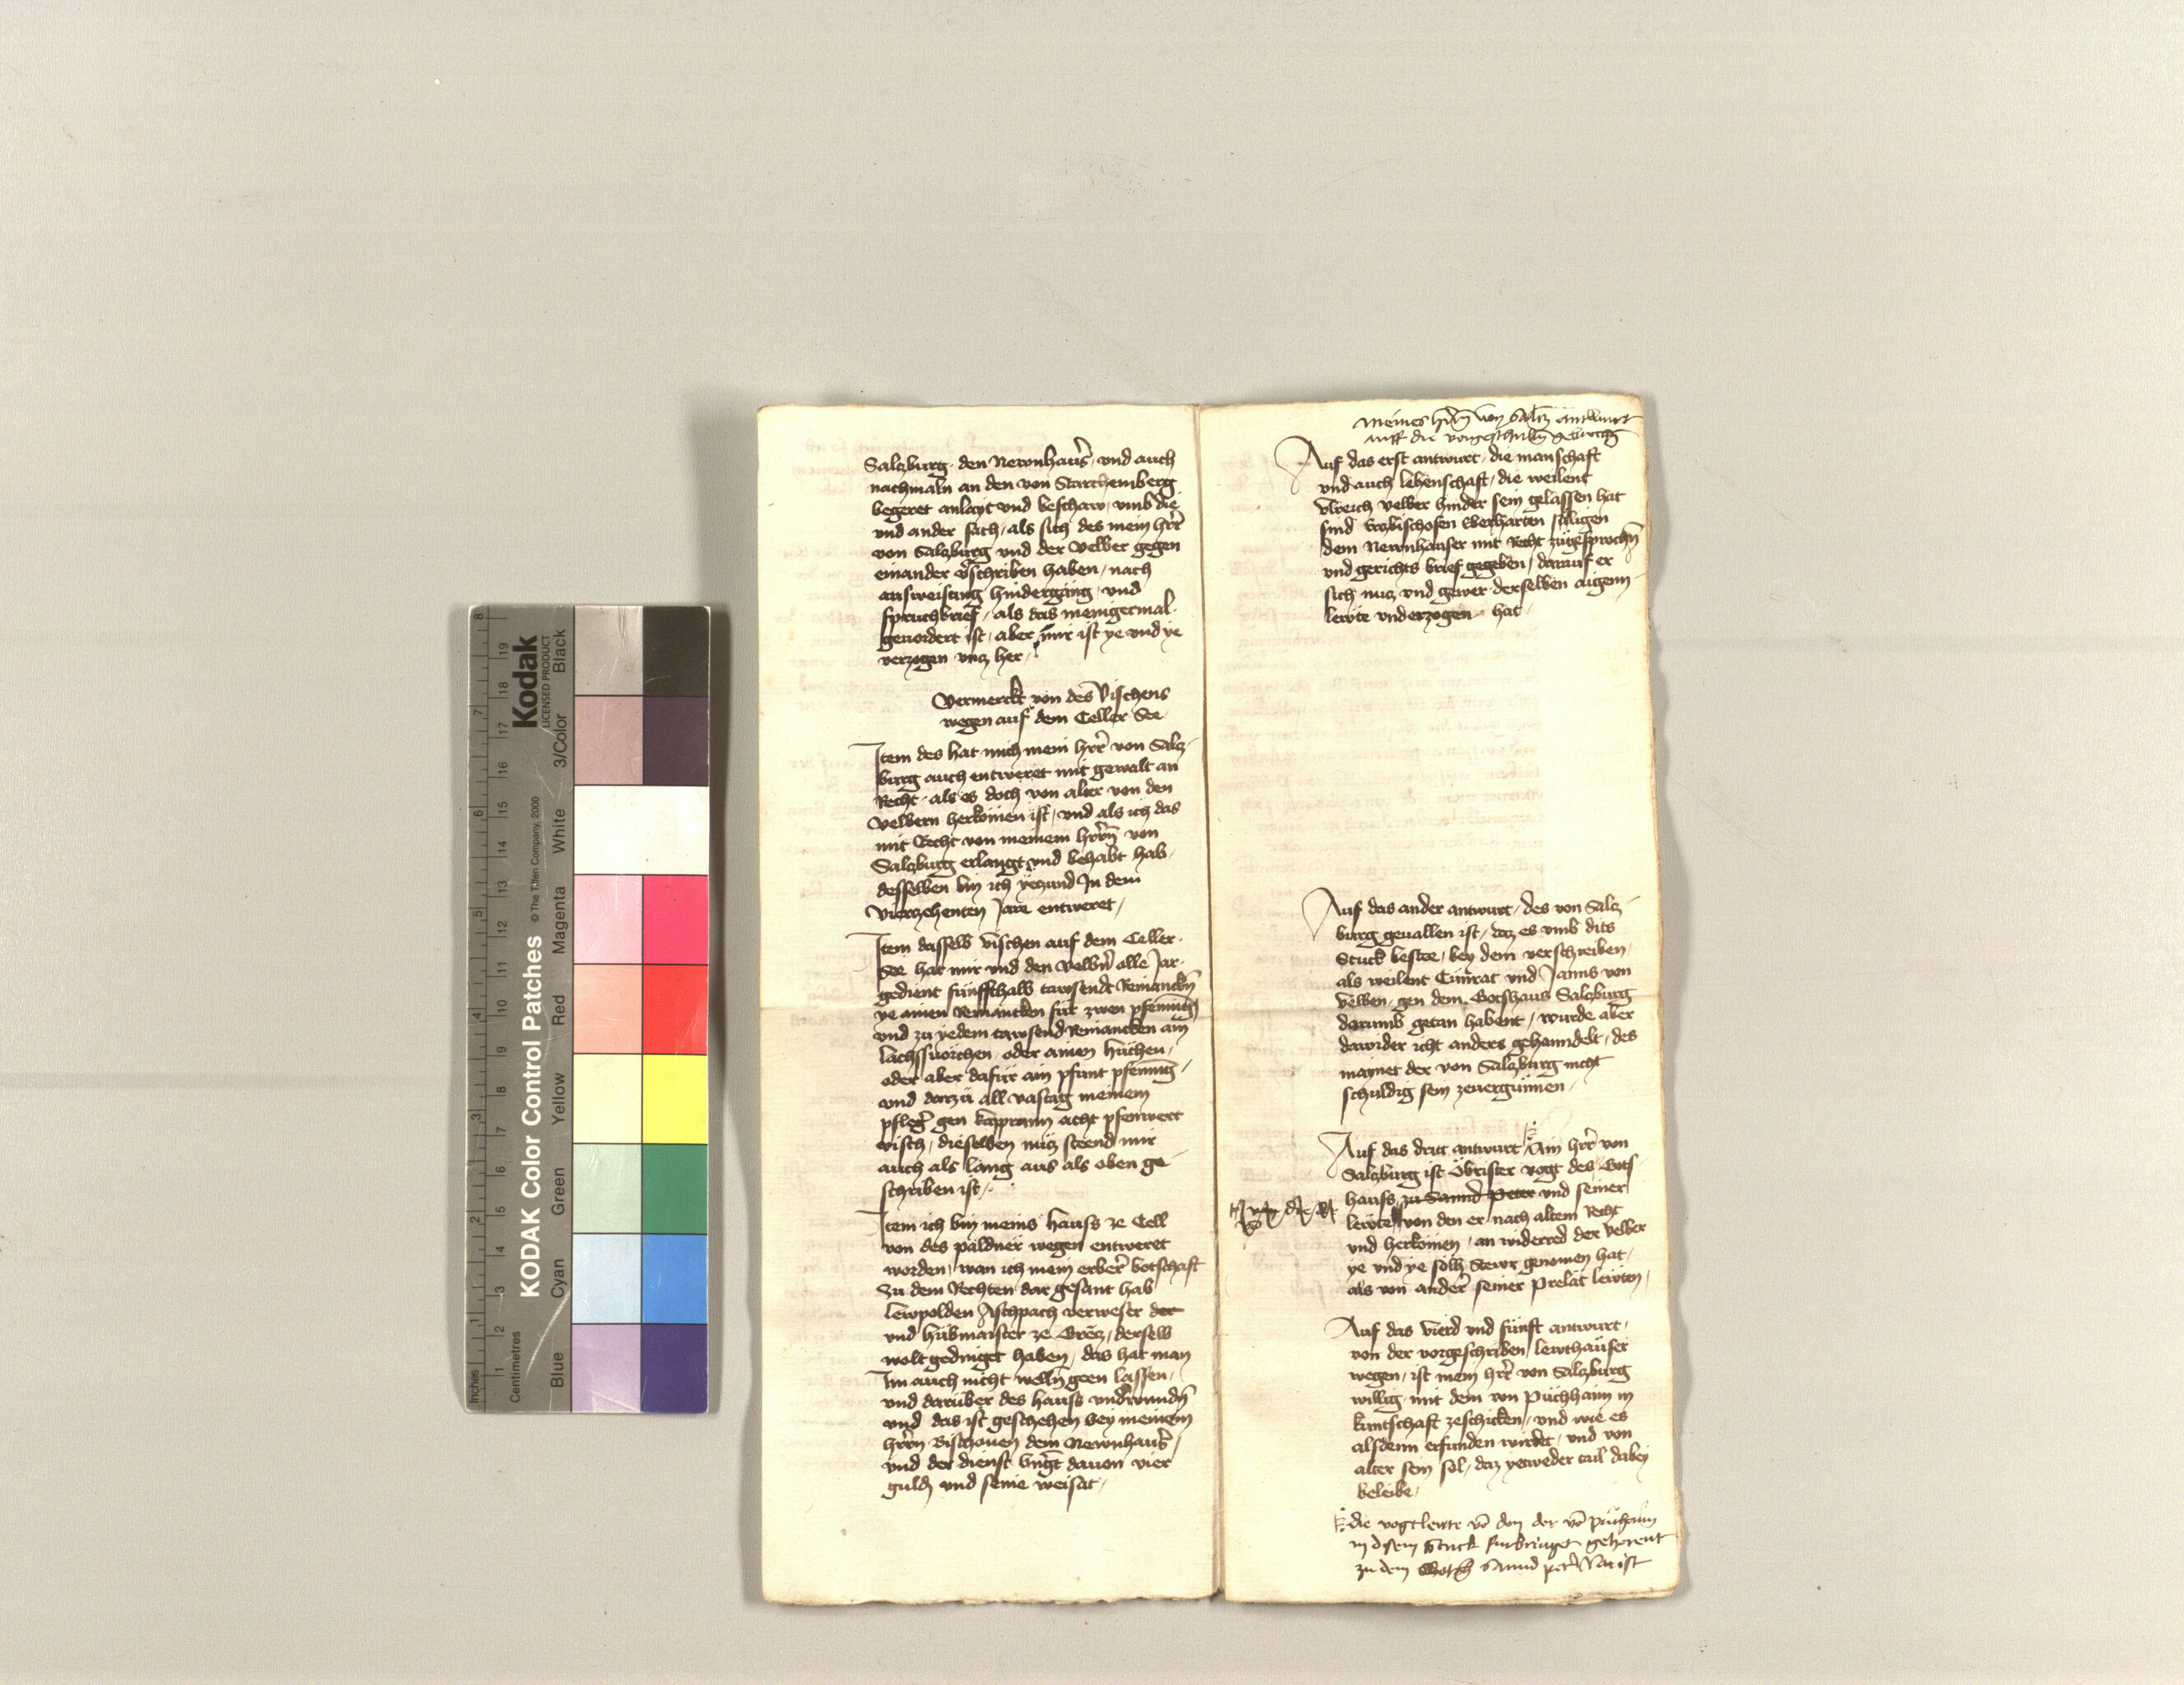 Salczburg den Newnhaus̉ / vnd auch
nachmaln an den von Starchemberg
begeret anlayt vnd beschaw / vmb die
vnd ander sach / als sich des mein hr̃r
von Salczburg vnd der Velber gegen
einander v̉schriben haben / nach
ausweisung hindergang / vnd
spruchbrief / als das menigermal
geuordert ist / aber mir ist ye vnd ye
verzogen vncz her /
Vermerckt von des Vischens
wegen auf dem Celler See
Item des hat mich mein hr̃r von Salcz
burg auch entweret mit gewalt an
Recht / als es doch von alter von den
Velbern herkömen ist / vnd als ich das
mit Recht von meinem hr̃rn von
Salczburg erlangt vnd behabt hab /
desselben bin ich yeczund In dem
Vierczehenten Jare entweret /
Item dasselb vischen auf dem Celler
See hat mir vnd den Velbn̉ alle Jar
gedient fünffthalb tawsendt Reinanckn̄
ye ainen Reinancken für zwen pfennīg
vnd zu yedem tawsend Reinancken ain
lachssuorchen / oder ainen huchen /
oder aber dafür ain pfunt pfennīg /
vnd darzü all vastag meinem
pfleg̉ gen kapprunn acht pfenwert
visch / dieselben nucz steend mir
auch als lang aus als oben ge
schriben ist /
Item ich bin meins hauss ze Cell
von des päldner wegen entweret
worden / wan ich mein erber̉ botschaft
zu dem Rechten dar gesant hab
lewpolden Aschpach verweser der
vnd hubmaister ze Grëcz / derselb
wolt gedinget haben / das hat man
Im auch nicht wellñ geen lassen /
vnd darüber des hauss vnd̉wundñ
vnd das ist geschehen bey meinem
hr̃rn Bischouen dem Newnhaus̉ /
vnd der dienst bringt dauon vier
guldñ vnd seine weisat /
meines hr̃n von Salcz antwurt
auff die vorgeschribñ
Auf das erst antwurt / die manschaft
vnd auch lehenschaft / die weilent
Vlreich Velber hinder sein gelassen hat
sind Erczbischofen Eberharten säligen
dem Newnhauser mit Recht zugesprochñ
vnd gerichts brief gegeben / darauf er
sich nucz vnd gewer derselben aigenn
lewte vnderzogen hat /
Auf das ander antwurt / des von Salcz
burg geuallen ist / daz es vmb dits
Stuck bestee / bey dem verschreiben
als weilent Cünrat vnd Janns von
Velben / gen dem Gotshaus Salczburg
darumb getan habent / wurde aber
dawider icht anders gehanndelt / des
maynet der von Salczburg nicht
schuldig sein zeuergünnen /
Auf das dritt antwurt / Ain hr̃r von
Salczburg ist Obrister vogt des Gots
hauss zu Sannd Peter vnd seiner
lewte von den er nach altem Recht
vnd herkömen / an widerred der Velber
ye vnd ye sölh Stewr genomen hat /
als von ander̉ seiner Prelat lewten /
Auf das vierd vnd fünft antwurt /
von der vorgeschriben lewthäuser
wegen / ist mein hr̃r von Salczburg
willig mit dem von Püchhaim in
kuntschaft zeschicken / vnd wie es
alsdenn erfunden wirdet / vnd von
alter sein sol / daz yetweder tail dabey
beleibe /
die vogtlewte vō den der vō püchaim
in disem Stuck furbringet gehorent
zu dem Sannd peter Nu ist